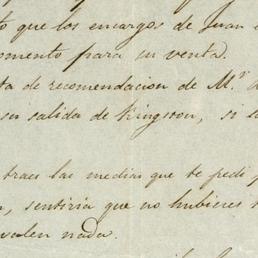 to que los encargos de Juan
omento para su venta.
ta de recomendacion de M.r
su salida de Kingston, si
traes las medias que te pedi
, sentiria que no hubieses
valen nada.